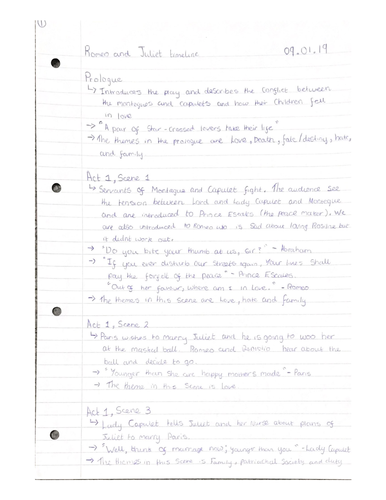 ①
Romeo and Juliet timeline 09.01.19
Prologue
↳ Introduces the play and describes the conflict between
the Montagues and Capulets and how their children fall
in love
→ "A pair of star-crossed lovers take their life"
→ The themes in the prologue are Love, Death, fate/destiny, hate,
and family.
Act 1, Scene 1
↳ Servants of Montague and Capulet fight. The audience see
the tension between Lord and Lady Capulet and Montague
and are introduced to Prince Escalus (the peace maker). We
are also introduced to Romeo who is sad about loving Rosaline but
it didnt work out.
→ "Do you bite your thumb at us, Sir?" - Abraham
→ "If you ever disturb our streets again, Your lives shall
pay the forfeit of the peace" - Prince Escalus
"Out of her favour, where am I in love." - Romeo
→ The themes in this scene are love, hate and family
Act 1, Scene 2
↳ Paris wishes to Marry Juliet and he is going to woo her
at the masked ball. Romeo and Benvolio hear about the
ball and decide to go.
→ "Younger than she are happy mothers made" - Paris
→ The theme in this scene is love
Act 1, Scene 3
↳ Lady Capulet tells Juliet and her nurse about plans of
Juliet to marry Paris.
→ "Well, think of marriage now; younger than you" - Lady Capulet
→ The themes in this scene is Family, Patriarchal Society and duty